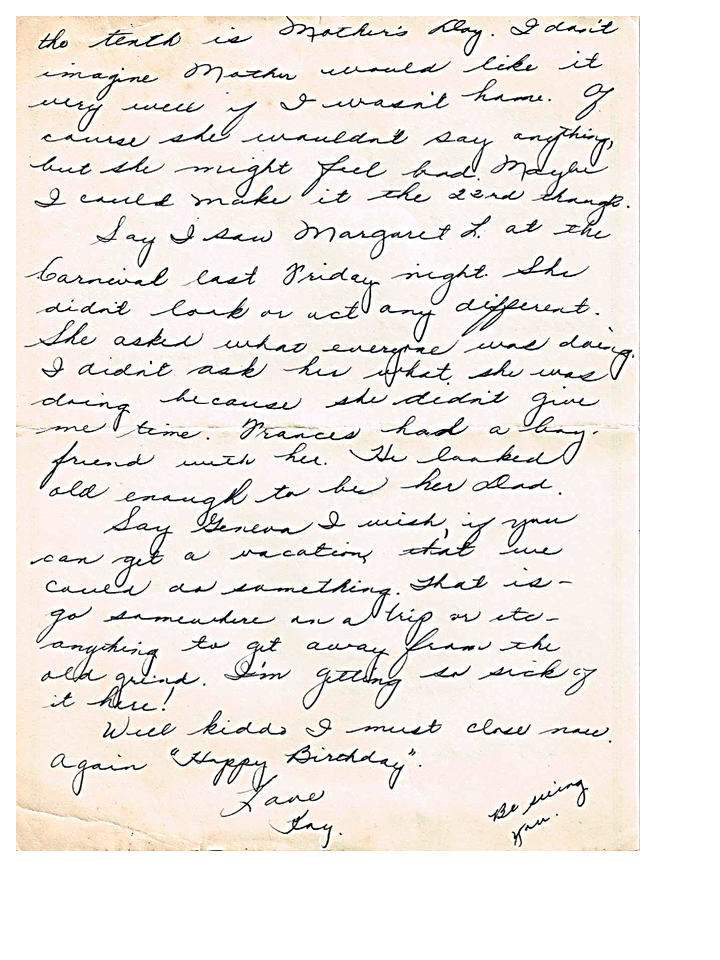 the tenth is Mother's Day. I don't
imagine Mother would like it
very well if I wasn't home. Of
course she wouldn't say anything,
but she might feel bad. Maybe
I could make it the 23rd though.
Say I saw Margaret L. at the
Carnival last Friday night. She
didn't look or act any different.
She asked what everyone was doing.
I didn't ask her what she was
doing because she didn't give
me time. Frances had a boy-
friend with her. He looked
old enough to be her Dad.
Say Geneva I wish, if you
can get a vacation, that we
could do something. That is -
go somewhere on a trip or etc -
anything to get away from the
old grind. I'm getting so sick of
it here!
Well kiddo I must close now.
Again "Happy Birthday".
Love
Kay.
Be seeing
you.